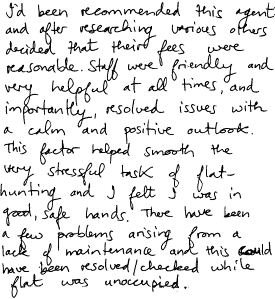 I'd been recommended this agent
and after researching various others
decided that their fees were
reasonable. Staff were friendly and
very helpful at all times, and
importantly, resolved issues with
a calm and positive outlook.
This factor helped smooth the
very stressful task of flat-
hunting and I felt I was in
good, safe hands. There have been
a few problems arising from a
lack of maintenance and this could
have been resolved/checked while
flat was unoccupied.